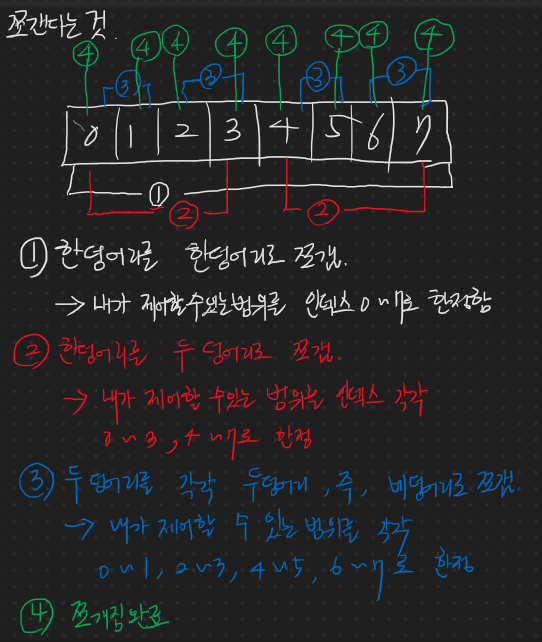 쪼갠다는 것.
④ ④ ④ ④ ④ ④ ④ ④
③ ③ ③ ③
0 1 2 3 4 5 6 7
①
② ②
① 한덩어리를 한덩어리로 쪼갬.
→ 내가 제어할수있는범위를 인덱스 0~7로 한정함
② 한덩어리를 두 덩어리로 쪼갬.
→ 내가 제어할 수있는 범위를 인덱스 각각
0~3, 4~7로 한정
③ 두덩어리를 각각 두덩어리, 즉, 네덩어리로 쪼갬.
→ 내가 제어할 수 있는 범위를 각각
0~1, 2~3, 4~5, 6~7로 한정
④ 쪼개짐완료